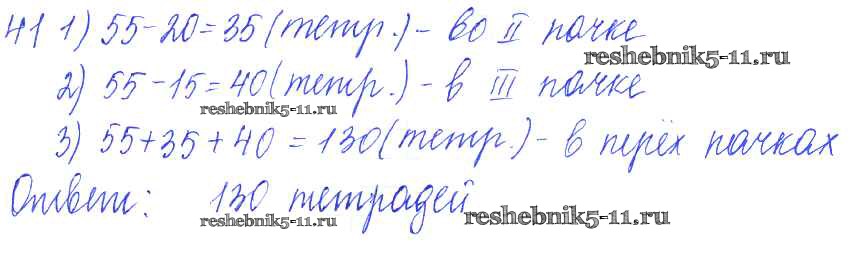 41 1) 55-20=35(тетр.)- во II пачке
reshebnik5-11.ru
2) 55-15=40(тетр.)- в III пачке
reshebnik5-11.ru
3) 55+35+40=130(тетр.)- в трёх пачках
Ответ: 130 тетрадей
reshebnik5-11.ru
reshebnik5-11.ru